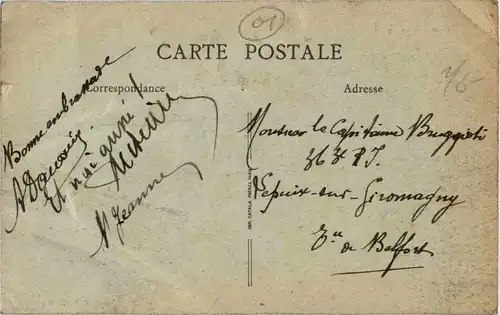 01
CARTE POSTALE
Correspondance
Adresse
Bonne embrassade
Et moi aussi
M Jeanne
Monsieur le Capitaine Bruggisti
363 R.I.
Lepuix-sur-Giromagny
Tre de Belfort
IMP. CATALA FRÈRES, PARIS